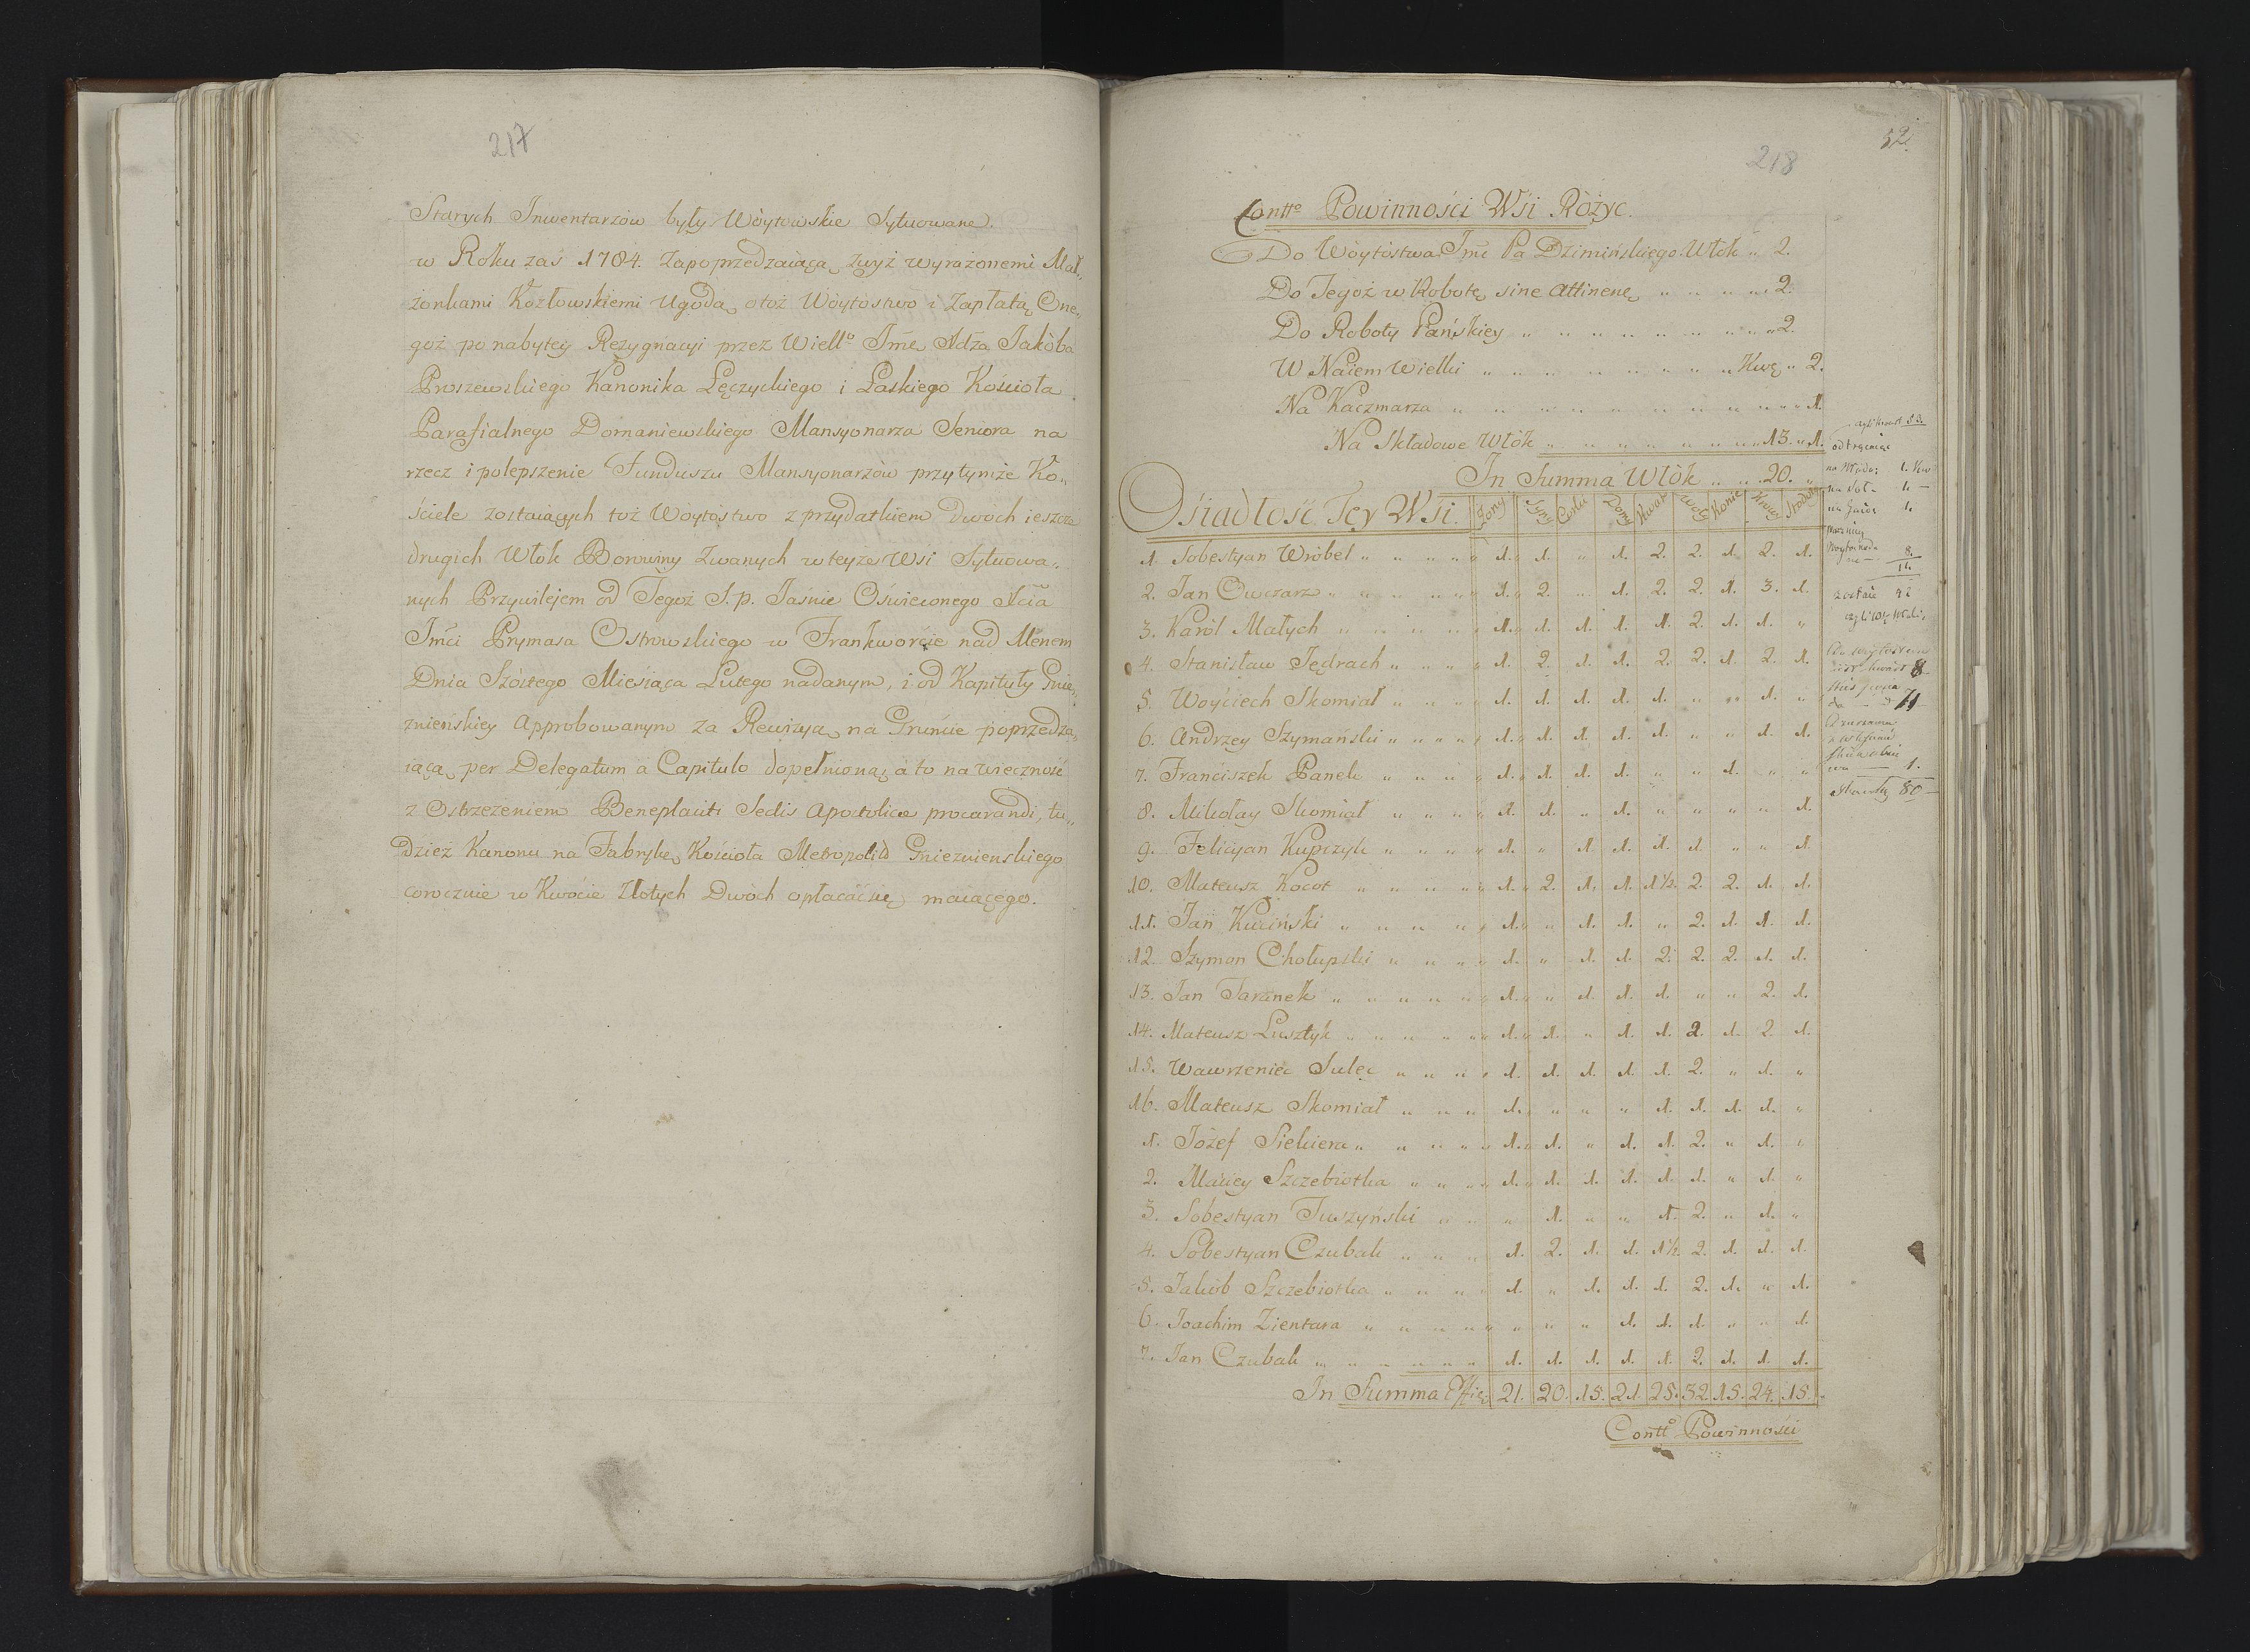 217
Starych Inwentarzów były Wóytowskie Sytuowane.
w Roku zas 1784. Zapoprzedzaiącą zwyż wyrażonemi Mał„
żonkami Kozłowskiemi Ugodą, otoż Wóytostwo i Zapłatą One„
goż po nabytey Rezygnacyi przez Wiell° Jme Xdza Jakóba
Proszewskiego Kanonika Łęczyckiego i Laskiego Kościoła
Parafialnego Domaniewskiego Mansyonarza Seniora na
rzecz i polepszenie Funduszu Mansyonarzów przy tymże Ko„
ściele zostaiących toż Wóytostwo z przydatkiem dwoch ieszcze
drugich Włók Borowiny zwanych w teyże Wsi Sytuowa„
nych Przywilejem od Tegoż S. p. Jaśnie Oświeconego Xcia
Jmći Prymasa Ostrowskiego w Frankworcie nad Menem
Dnia Szóstego Miesiąca Lutego nadanym, i od Kapituły Gnie„
znieńskiey Approbowanym za Rewizyą na Gruncie poprzedza„
iącą per Delegatum a Capitulo dopełnioną, a to na wieczność
z Ostrzezeniem Beneplaciti Sedis Apostolicæ procurandi, tu„
dzież Kanonu na Fabrykę Kościoła Metropolit Gnieznienskiego
corocznie w Kwocie Złotych Dwóch opłacać się maiącego.
52.
218
Contto Powinności Wsi Różyc.
Do Wóytostwa Jmć Pa Dzimińskiego Włók „ 2.
Do Tegoż w Robotę sine attinenę „ „ „ „ 2.
Do Roboty Pańskiey „ „ „ „ „ „ „ „ 2.
W Naiem Wielki „ „ „ „ „ „ „ „ Kwę „ 2.
Na Kaczmarza „ „ „ „ „ „ „ „ „ 1.
Na Składowe Włók „ „ „ „ „ „ „ 13. „ 1.
In Summa Włók „ „ 20. „
Osiadłość Tey Wsi. Zony Syny Corki Domy Kwart Woły Konie Krowy Stodoły
1. Sobestyan Wróbel „ „ „ „ 1. 1. „ 1. 2. 2. 1. 2. 1.
2. Jan Owczarz „ „ „ „ 1. 2. „ 1. 2. 2. 1. 3. 1.
3. Karól Małych „ „ „ „ 1. 1. 1. 1. 1. 2. 1. 1. „
4. Stanisław Jędrach „ „ „ „ 1. 2. 1. 1. 2. 2. 1. 2. 1.
5. Woyciech Skomiał „ „ „ „ 1. 1. 1. 1. 1. „ „ 1. „
6. Andrzey Szymański „ „ „ „ 1. 1. 1. 1. 1. „ „ 1. 1.
7. Franciszek Panek „ „ „ „ 1. 1. 1. 1. „ „ 1. „ „
8. Mikołay Skomiał „ „ „ „ 1. 1. „ 1. „ „ „ „ 1.
9. Felicyan Kupczyk „ „ „ „ 1. „ 1. 1. 1. 1. „ „ 1.
10. Mateusz Kocot „ „ „ „ 1. 2. 1. 1. 1½. 2. 2. 1. 1.
11. Jan Kuciński „ „ „ „ 1. „ 1. 1. „ 2. 1. 1. 1.
12. Szymon Chołupski „ „ „ „ 1. „ 1. 1. 2. 2. 2. 1. 1.
13. Jan Taranek „ „ „ „ 1. „ 1. 1. 1. „ „ 2. 1.
14. Mateusz Lusztyk „ „ „ „ 1. 1. „ 1. 1. 2. 1. 2. 1.
15. Wawrzeniec Sulec „ „ „ „ 1. 1. 1. 1. 1. 2. „ 1. „
16. Mateusz Skomiał „ „ „ 1. „ „ „ 1. 1. 1. 1. „
1. Józef Siekiera „ „ „ „ 1. 1. „ 1. 1. 2. „ 1. „
2. Maciey Szczebiotka „ „ „ „ 1. 1. 1. 1. 1. 1. „ 1. „
3. Sobestyan Tuszyński „ „ „ 1. „ „ 1. 2. „ 1. „
4. Sobestyan Czubak „ „ „ 1. 2. 1. 1. 1½. 2. 1. 1. 1.
5. Jakób Szczebiotka „ „ „ „ 1. „ 1. 1. 1. 2. 1. „ 1.
6. Joachim Zientara „ „ „ „ „ „ „ 1. 1. 1. „ „ 1.
7. Jan Czubak „ „ „ „ 1. 1. 1. 1. 1. 2. 1. 1. 1.
In Summa 21. 20. 15. 21. 25. 32. 15. 24. 15.
Contto Powinności
53.
odtrąciaiąc
8.
zostaie 42
8
1.
80